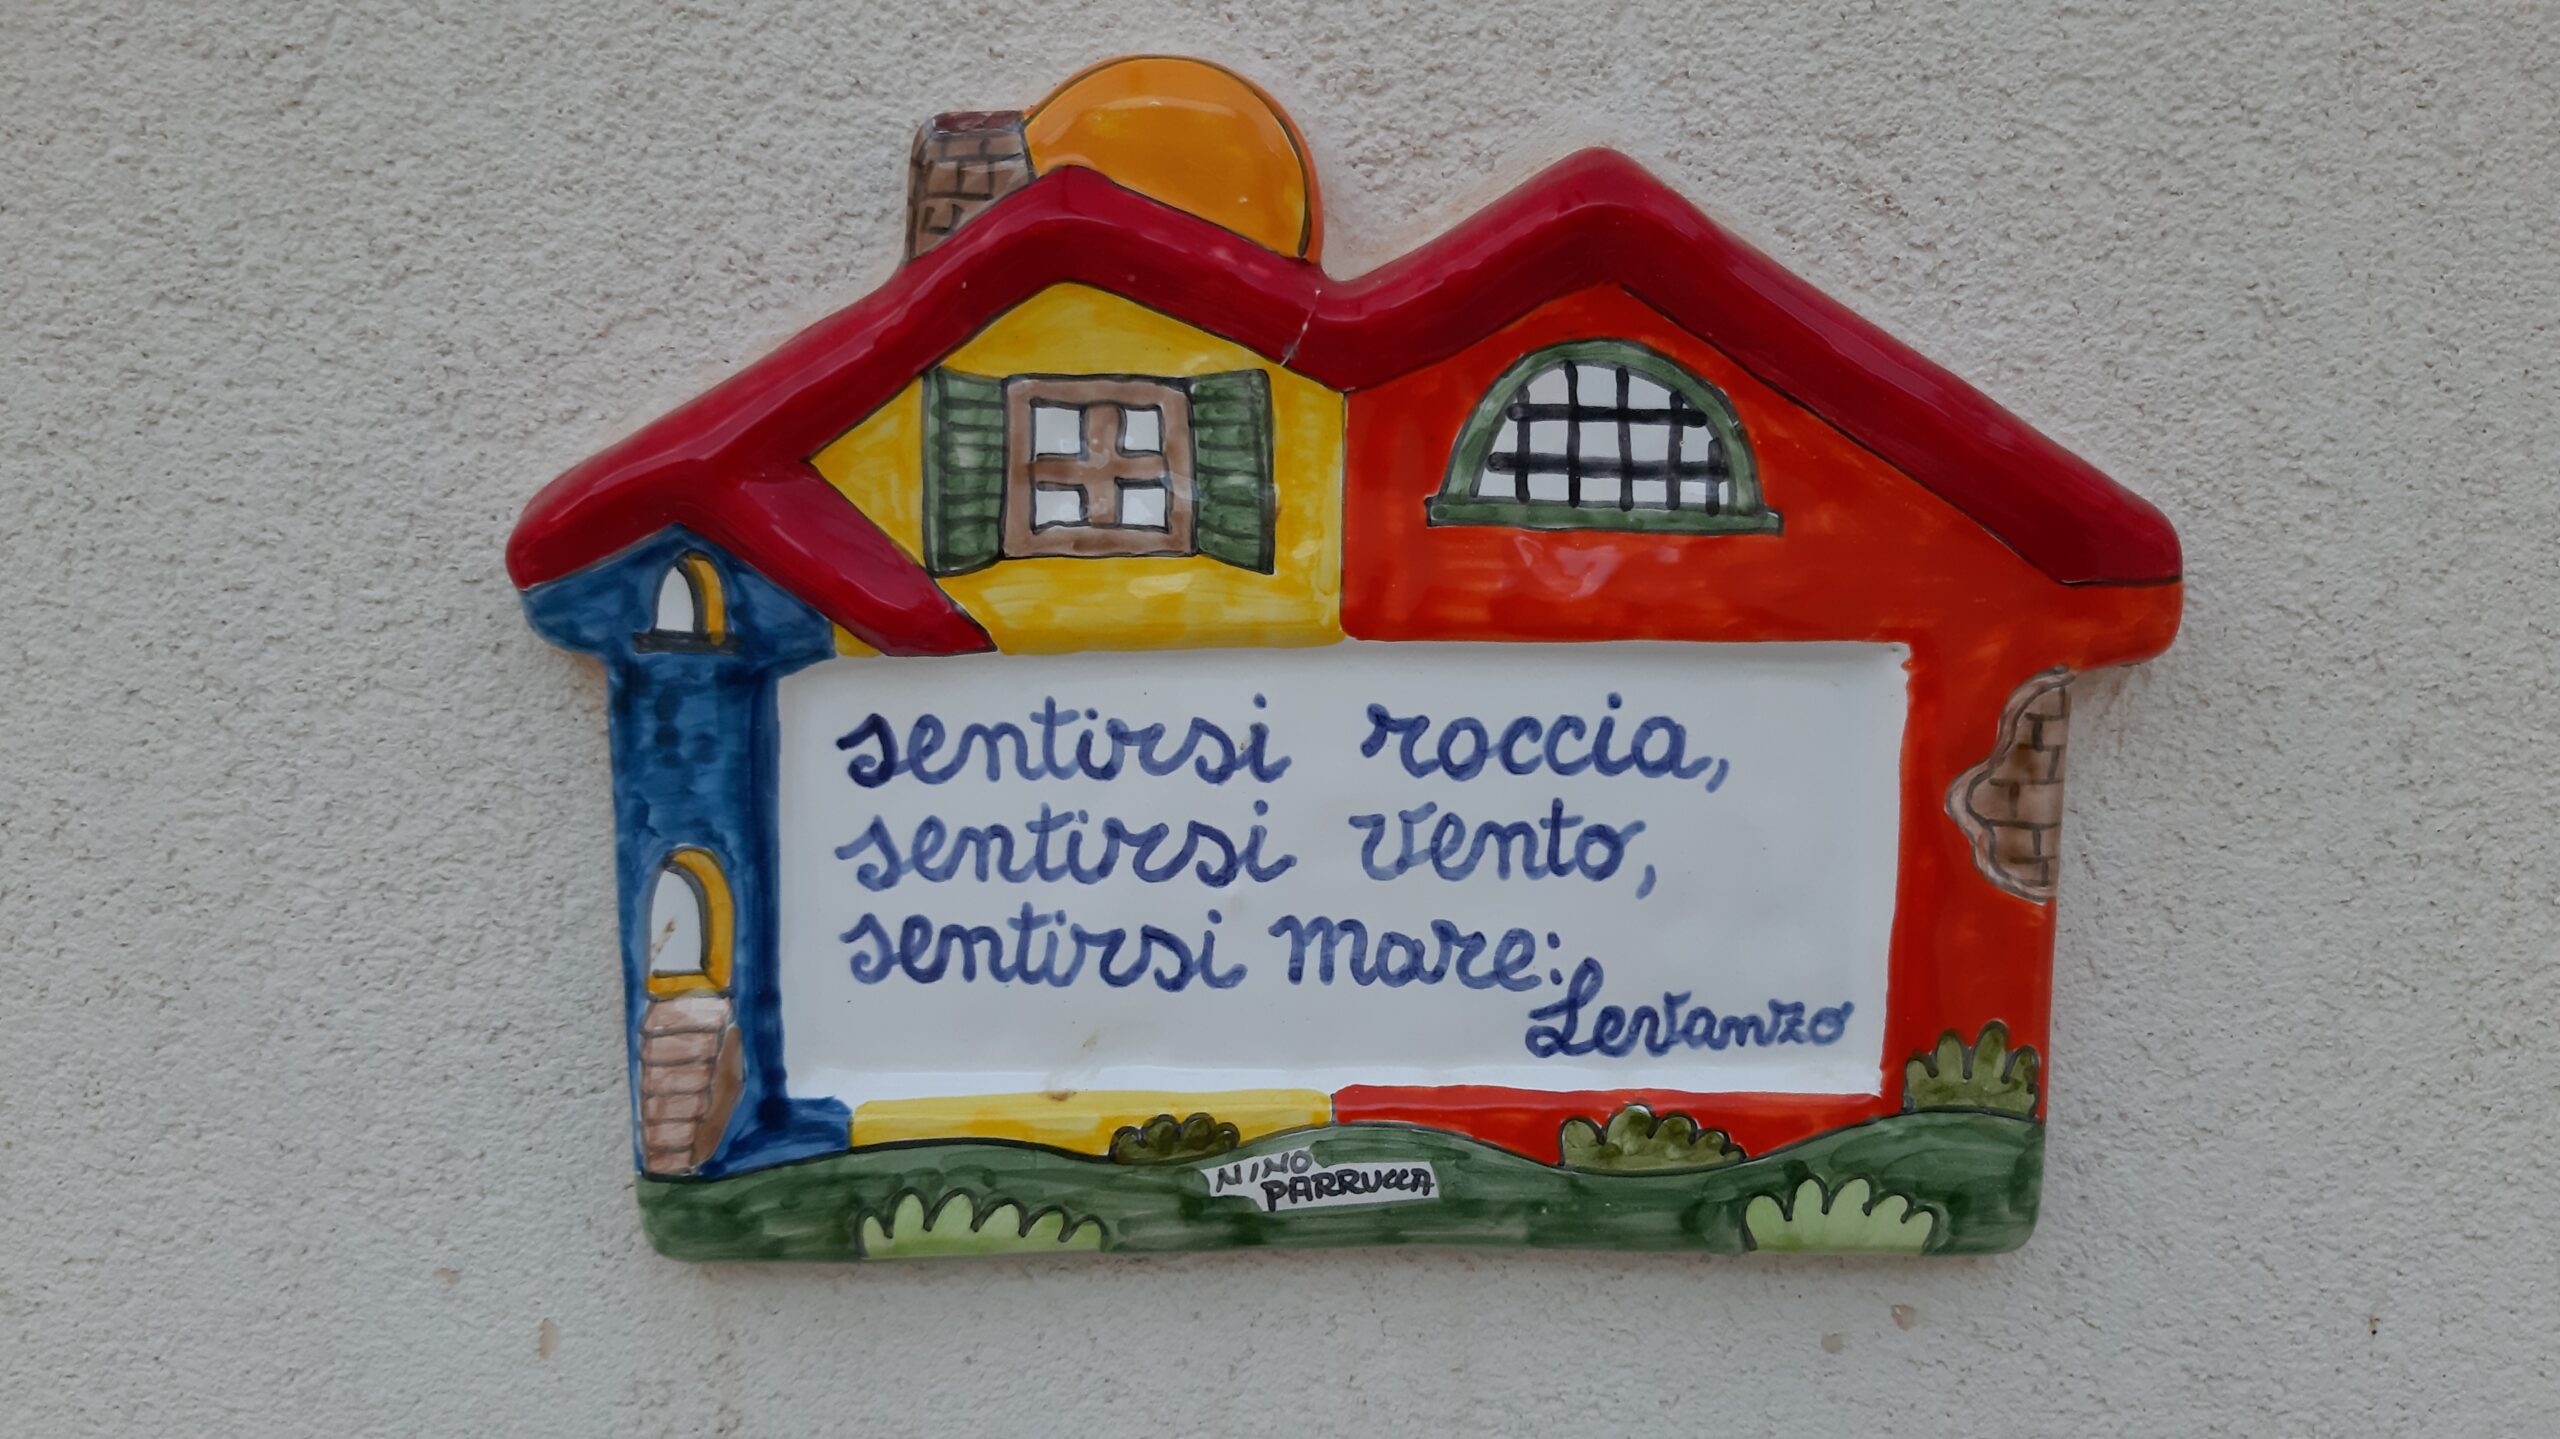 sentirsi roccia,
sentirsi vento,
sentirsi mare:
Levanzo
NINO
PARRUCCA